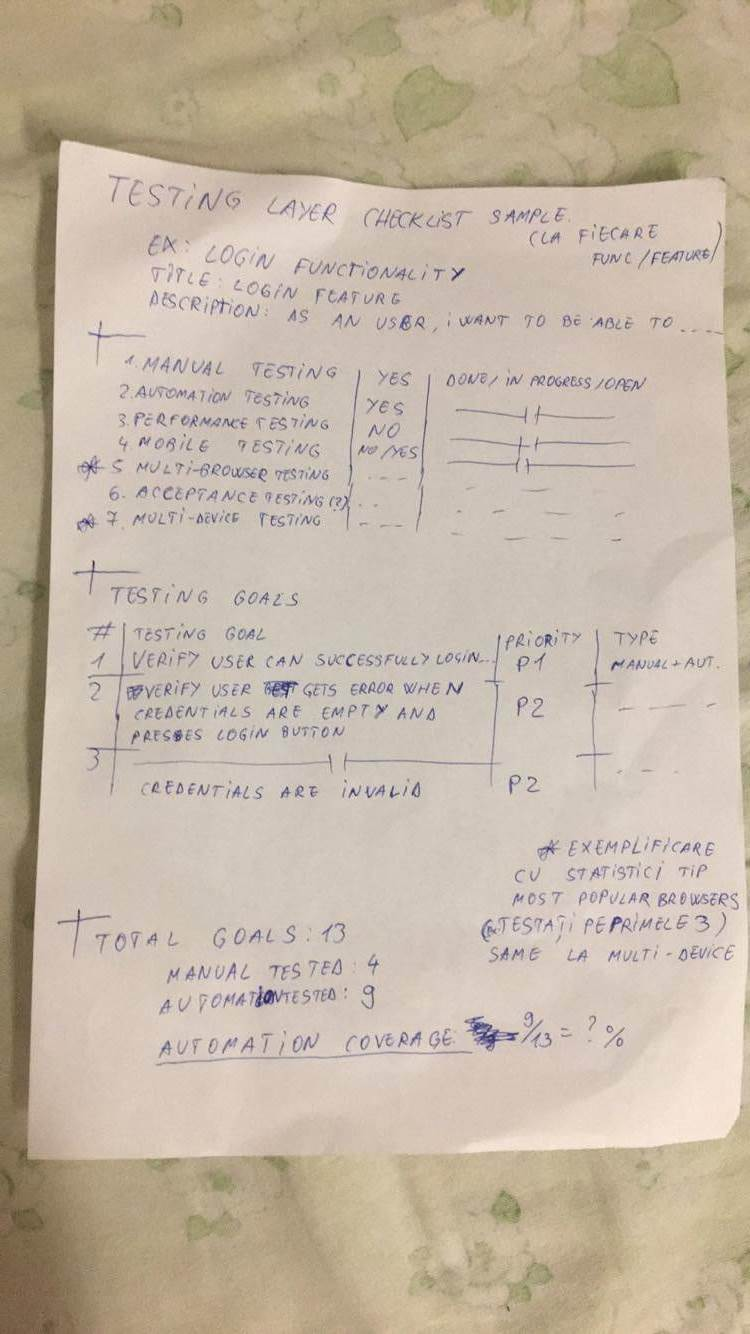 TESTING LAYER CHECKLIST SAMPLE.
(LA FIECARE
FUNC/FEATURE)
EX: LOGIN FUNCTIONALITY
TITLE: LOGIN FEATURE
DESCRIPTION: AS AN USER, I WANT TO BE ABLE TO ....
1. MANUAL TESTING | YES | DONE/IN PROGRESS/OPEN
2. AUTOMATION TESTING | YES
3. PERFORMANCE TESTING | NO
4. MOBILE TESTING | NO/YES
* 5 MULTI-BROWSER TESTING
6. ACCEPTANCE TESTING (?)
* 7. MULTI-DEVICE TESTING
TESTING GOALS
# | TESTING GOAL | PRIORITY | TYPE
1 | VERIFY USER CAN SUCCESSFULLY LOGIN... | P1 | MANUAL + AUT.
2 | VERIFY USER GETS ERROR WHEN
CREDENTIALS ARE EMPTY AND | P2
PRESSES LOGIN BUTTON
3
CREDENTIALS ARE INVALID | P2
* EXEMPLIFICARE
CU STATISTICI TIP
MOST POPULAR BROWSERS
(TESTAȚI PE PRIMELE 3)
SAME LA MULTI-DEVICE
TOTAL GOALS: 13
MANUAL TESTED: 4
AUTOMATION TESTED: 9
AUTOMATION COVERAGE: 9/13 = ? %